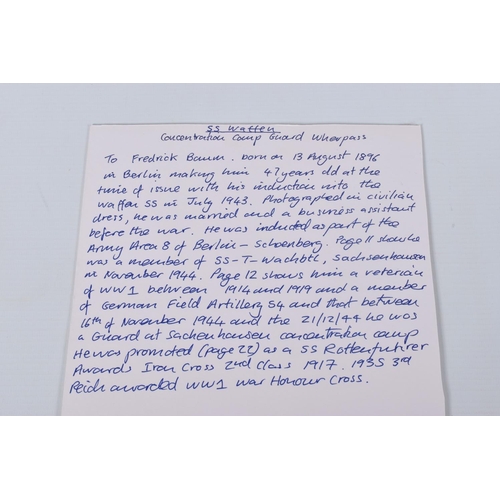 SS Waffen
Concentration Camp Guard Wherpass
To Fredrick Baum. born on 13 August 1896
in Berlin making him 47 years old at the
time of issue with his induction into the
waffen SS in July 1943. Photographed in civilian
dress, he was married and a business assistant
before the war. He was inducted as part of the
Army Area 8 of Berlin - Schoenberg. Page 11 show he
was a member of SS-T-Wachbtl, Sachsenhausen
in November 1944. Page 12 shows him a veterian
of WW1 between 1914 and 1919 and a member
of German Field Artillery 54 and that between
16th of November 1944 and the 21/12/44 he was
a Guard at Sachenhausen concentration camp
He was promoted (page 22) as a SS Rottenfuhrer
Awards Iron Cross 2nd Class 1917. 1935 3rd
Reich awarded WW1 war Honour Cross.